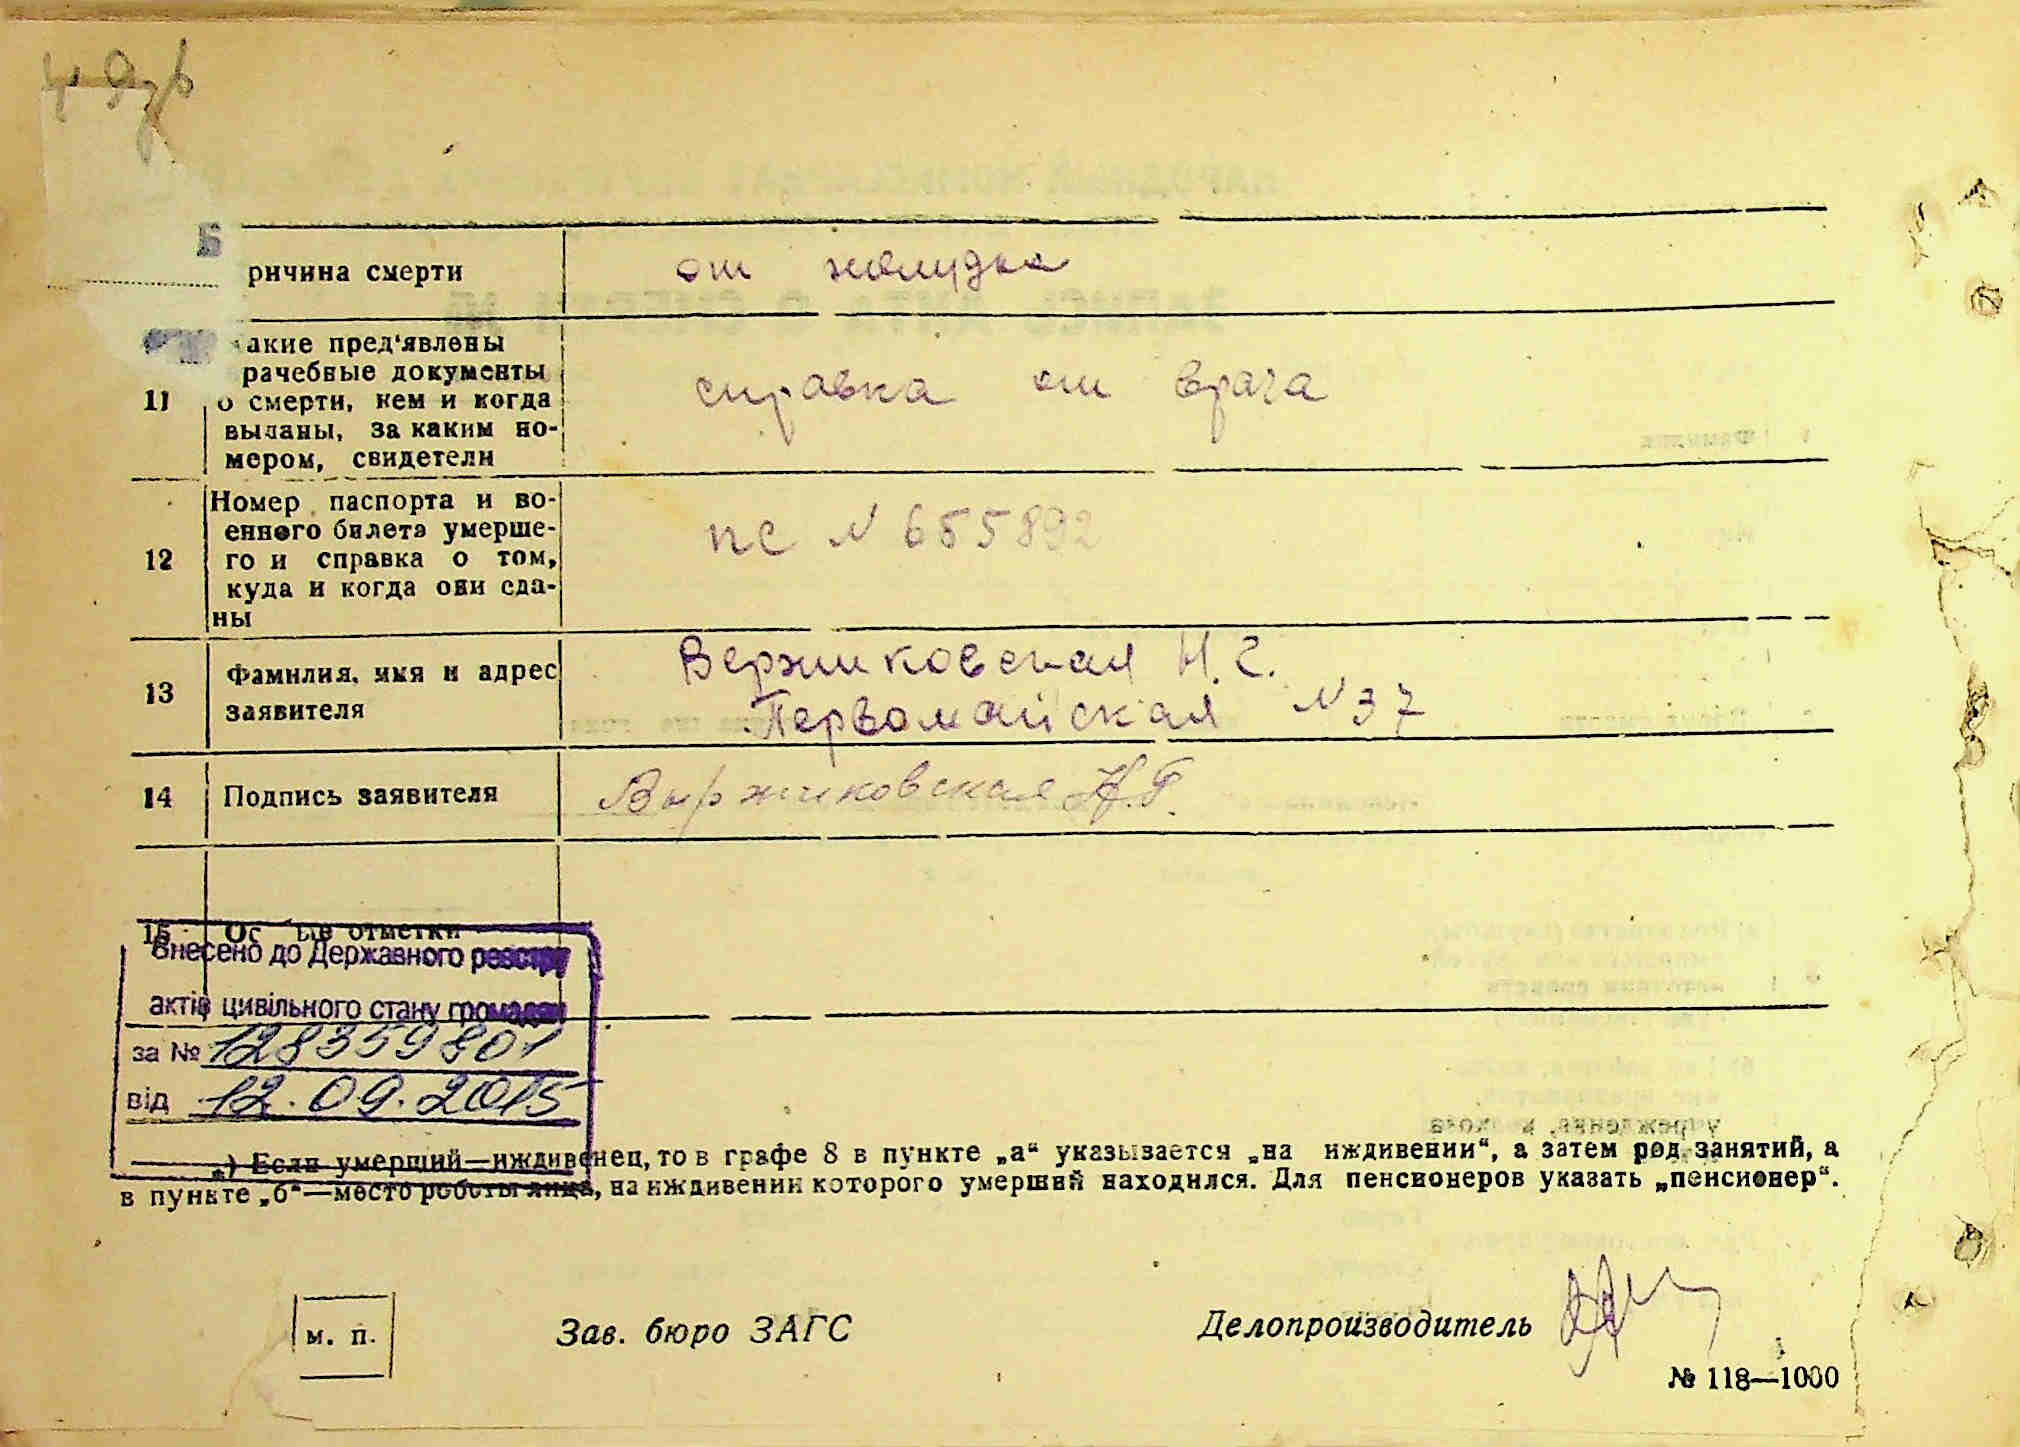 Б
ричина смерти
от желудка
акие пред'явлены
рачебные документы
11
о смерти, кем и когда
выданы, за каким но-
мером, свидетели
справка от врача
12
Номер паспорта и во-
енного билета умерше-
го и справка о том,
куда и когда они сда-
ны
ПС N 655892
13
Фамилия, имя и адрес
заявителя
Вержиковская Н. Г.
Первомайская N 37
14
Подпись заявителя
Выржиковская Н. Г.
15
Ос ые отметки
Внесено до Державного реєстру
актів цивільного стану громадян
за № 128359801
від 12.09.2015
„) Если умерший—иждивенец, то в графе 8 в пункте „а“ указывается „на иждивении“, а затем род занятий, а
в пункте „б“—место роботы лица, на иждивении которого умерший находился. Для пенсионеров указать „пенсионер“.
м. п.
Зав. бюро ЗАГС
Делопроизводитель
№ 118—1000